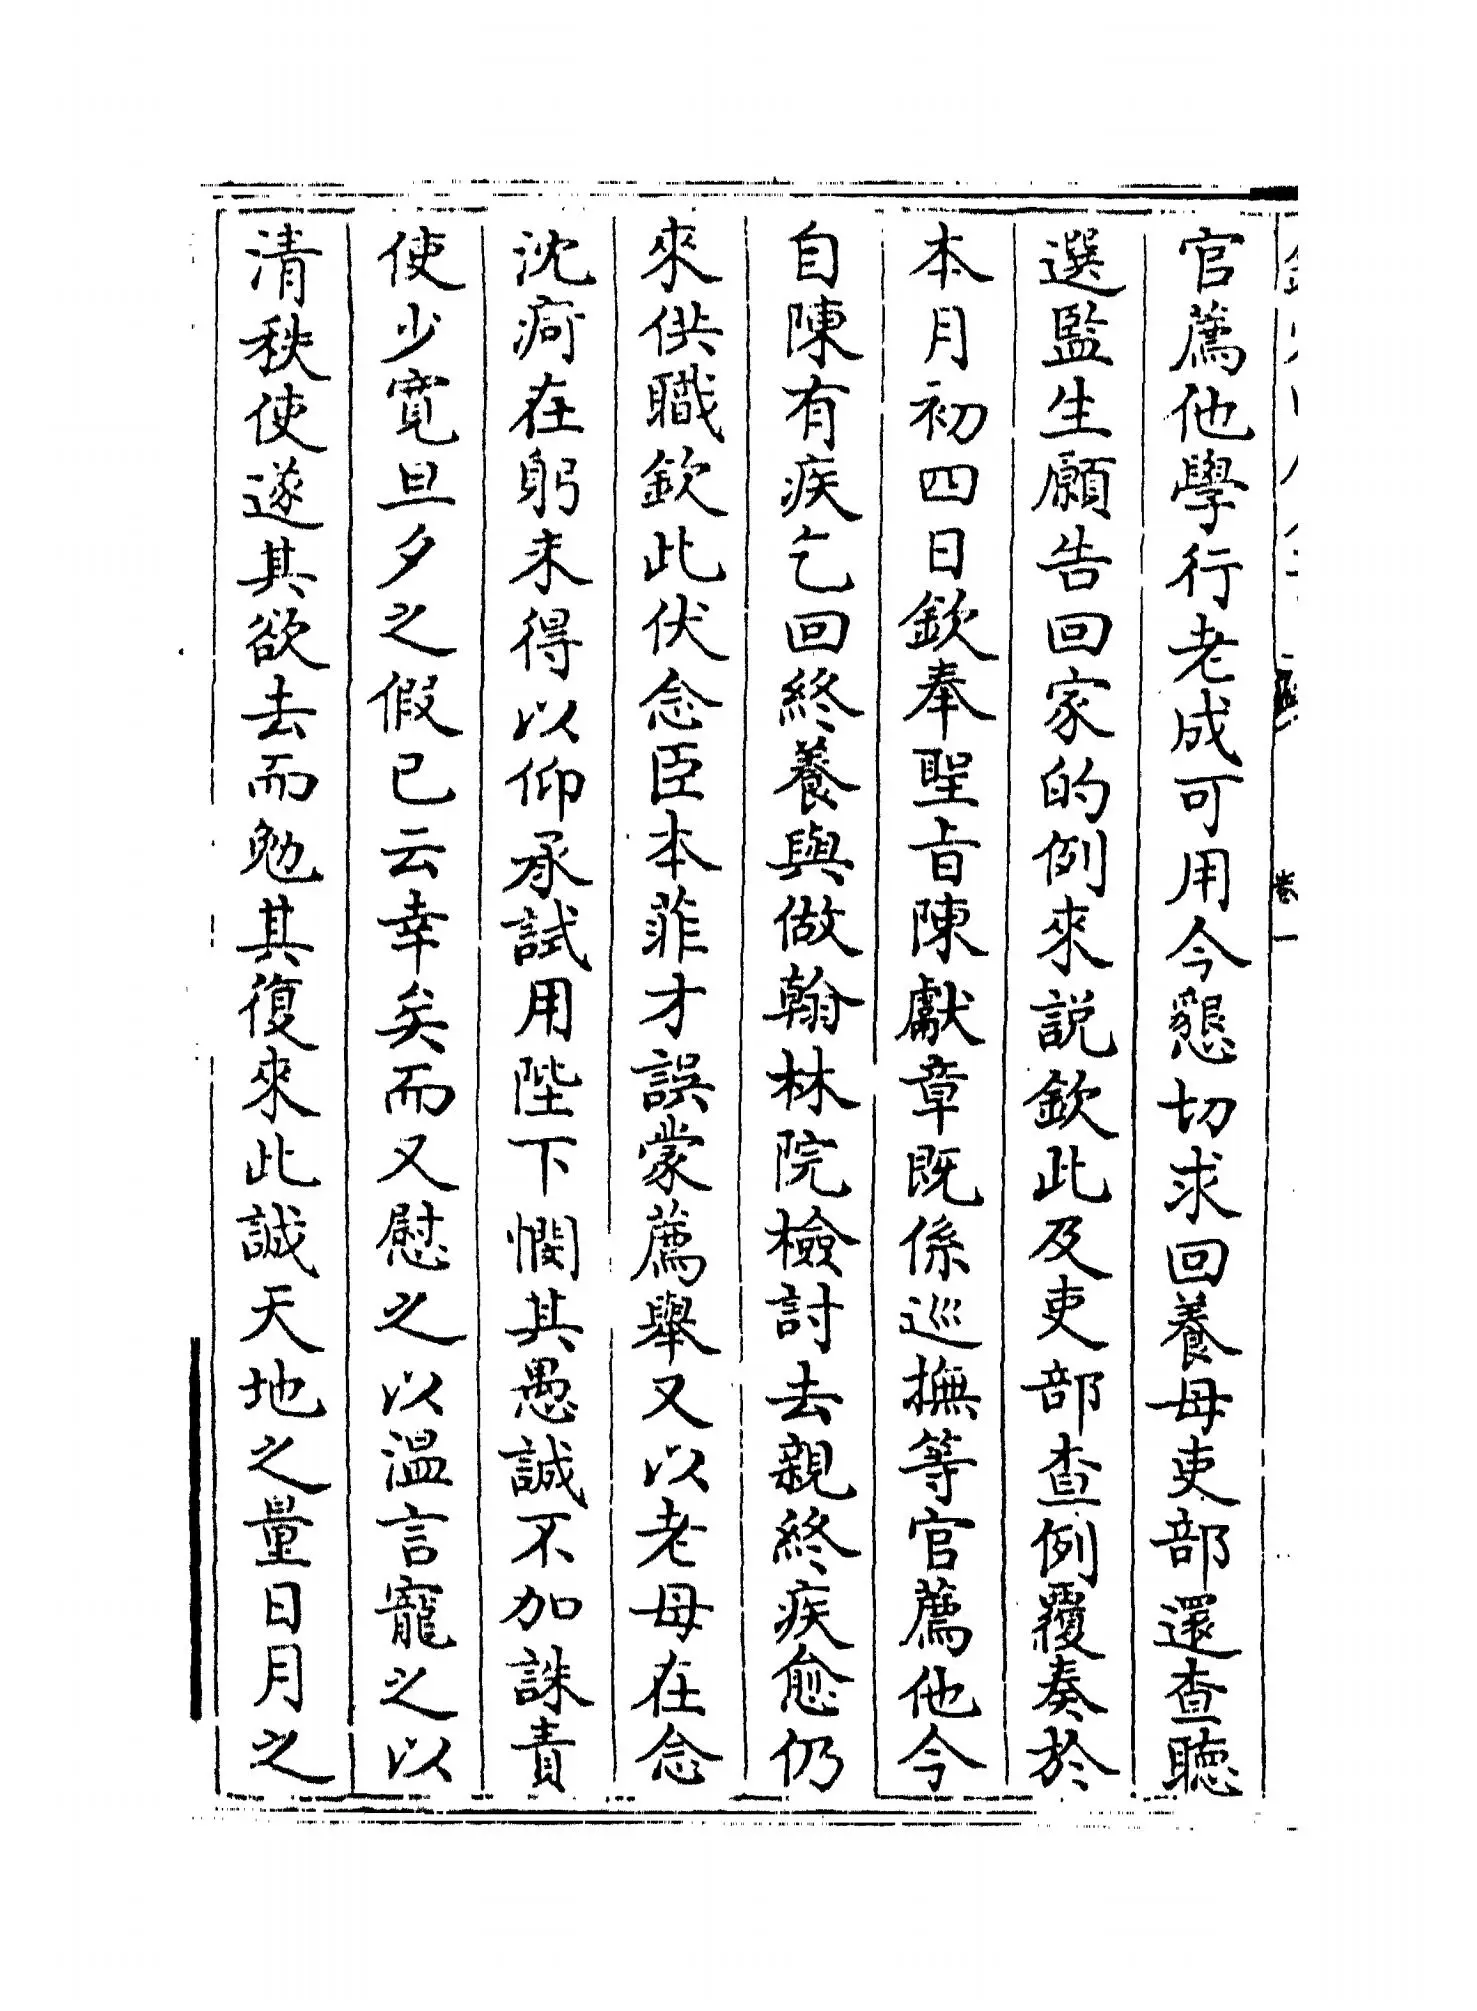 官薦他學行老成可用今懇切求回養母吏部還查聽
選監生願告回家的例來説欽此及吏部查例覆奏於
本月初四日欽奉聖旨陳獻章既係巡撫等官薦他今
自陳有疾乞回終養與做翰林院檢討去親終疾愈仍
來供職欽此伏念臣本菲才誤蒙薦舉又以老母在念
沈疴在躬未得以仰承試用陛下憫其愚誠不加誅責
使少寛旦夕之假已云幸矣而又慰之以温言寵之以
清秩使遂其欲去而勉其復來此誠天地之量日月之